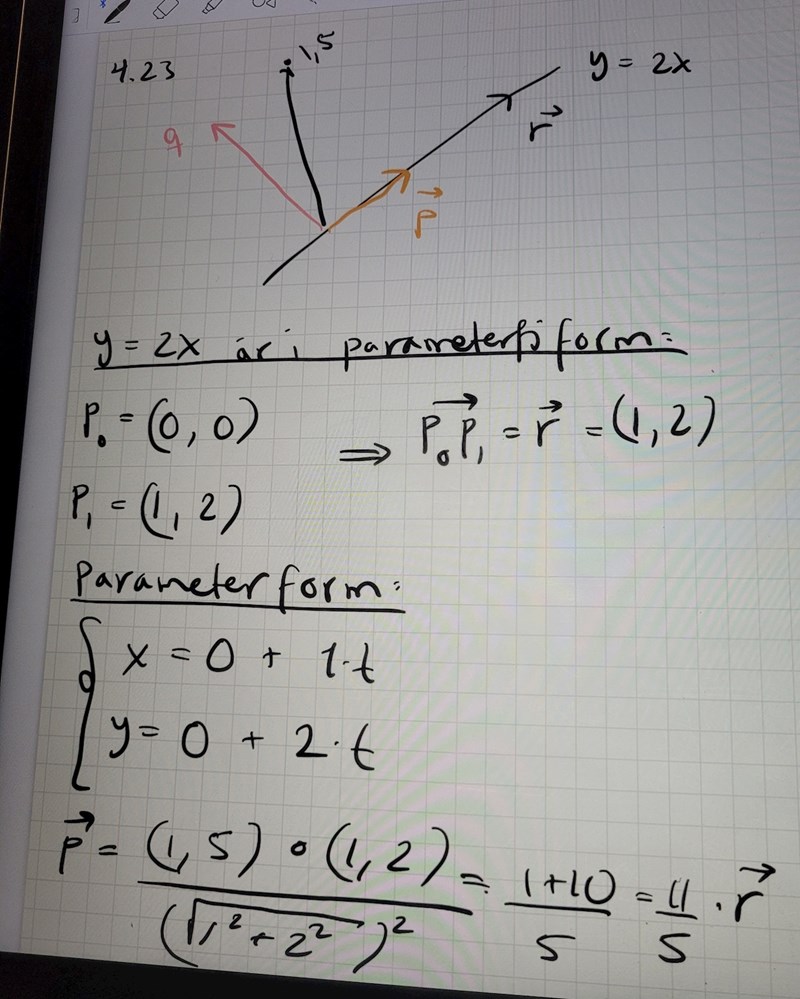 4.23
1,5
y = 2x
q
r⃗
p⃗
y = 2x är i parameterform:
P₀ = (0, 0)
⟹ P₀P₁⃗ = r⃗ = (1, 2)
P₁ = (1, 2)
Parameterform:
{ x = 0 + 1·t
y = 0 + 2·t
p⃗ = (1, 5) ∘ (1, 2) / (√1² + 2²)² = 1+10 / 5 = 11 / 5 · r⃗